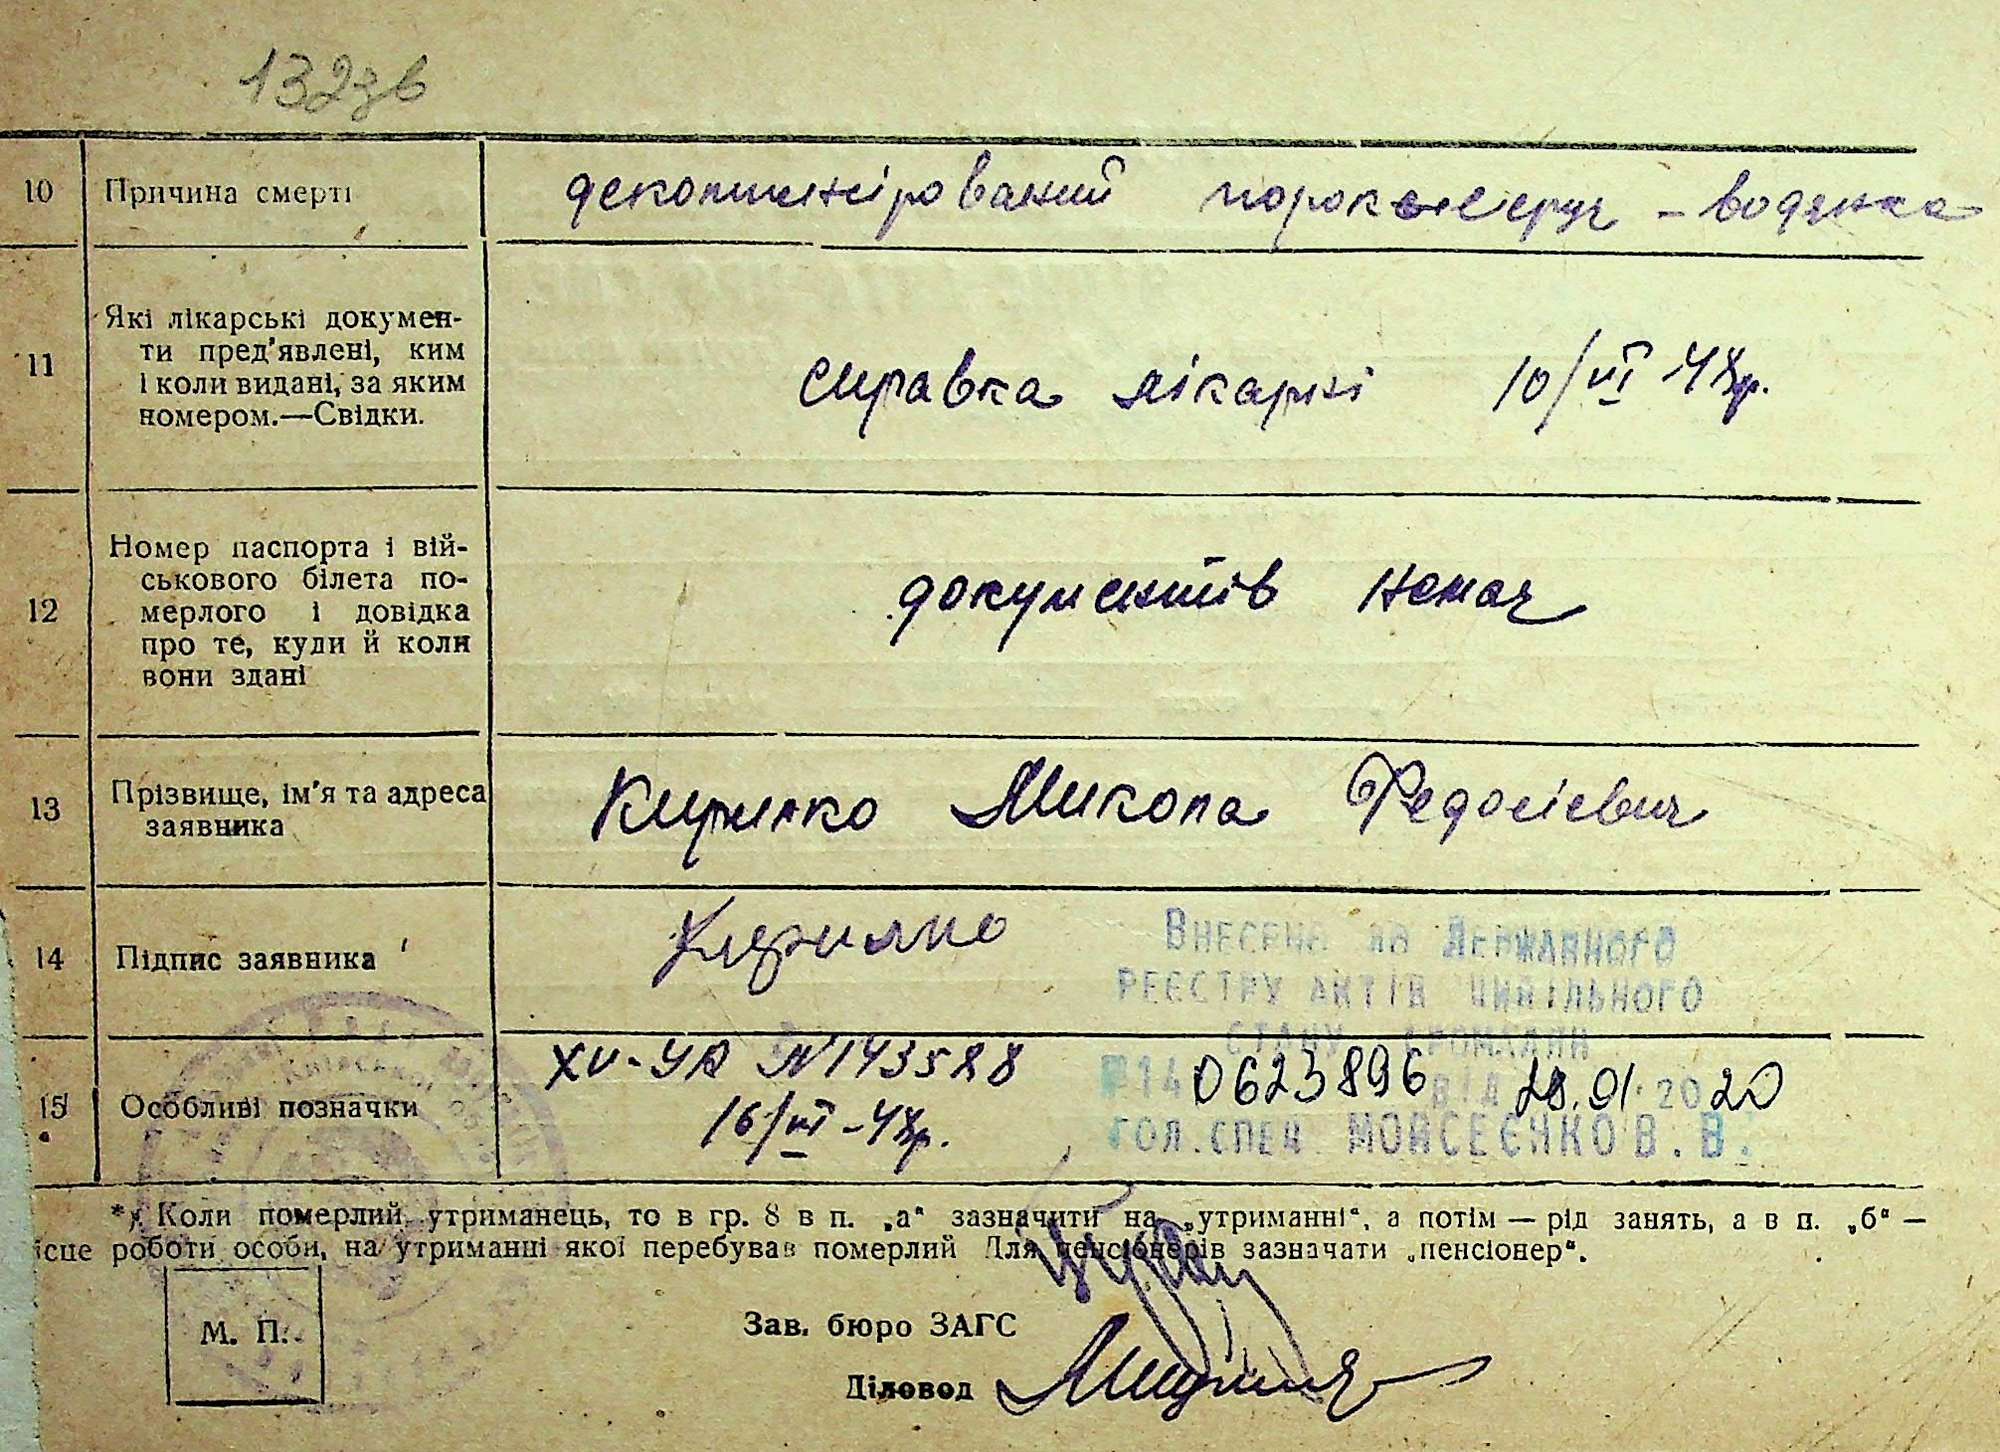 132зв
10 Причина смерті декопинсірований порок серця - водянка
11 Які лікарські докумен-
ти пред'явлені, ким
і коли видані, за яким
номером.—Свідки.
справка лікарні 10/VI-48р.
12 Номер паспорта і вій-
ськового білета по-
мерлого і довідка
про те, куди й коли
вони здані
документів немає
13 Прізвище, ім'я та адреса
заявника
Кирилко Микола Федосієвич
14 Підпис заявника Кирилко
Внесено до Державного
реєстру актів цивільного
стану громадян
15 Особливі позначки
XV-УА N 143588
16/VI-48р.
14 0623896 від 28.01.2020
гол.спец Моисеєнко В.В.
*) Коли померлий утриманець, то в гр. 8 в п. „а“ зазначити на „утриманні“, а потім — рід занять, а в п. „б“ —
ісце роботи особи, на утриманні якої перебував померлий Для пенсіонерів зазначати „пенсіонер“.
М. П.
Зав. бюро ЗАГС
Діловод